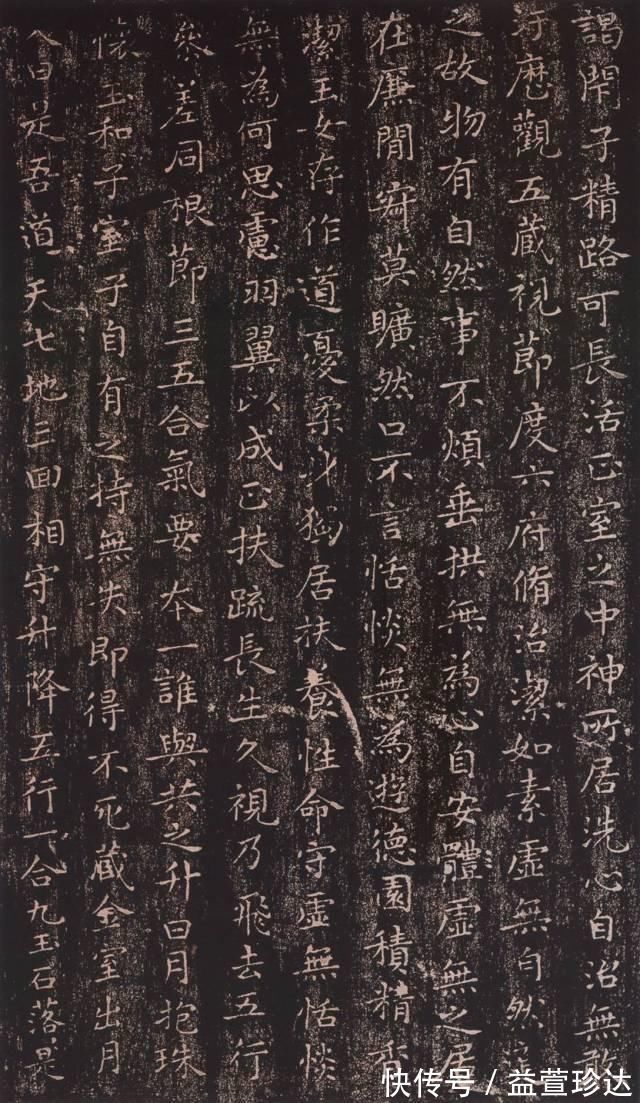 謁閇子精路可長活正室之中神所居洗心自治無敢
汙歷觀五藏視節度六府脩治潔如素虛無自然道
之故物有自然事不煩垂拱無為心自安體虛無之居
在廉間寂莫曠然口不言恬惔無為遊德園積精香
潔玉女存作道憂柔身獨居扶養性命守虛無恬惔
無為何思慮羽翼以成正扶疏長生久視乃飛去五行
參差同根節三五合氣要本一誰與共之升日月抱珠
懷玉和子室子自有之持無失即得不死藏金室出月
入日是吾道天七地三回相守升降五行一合九玉石落是
快传号／益萱珍达